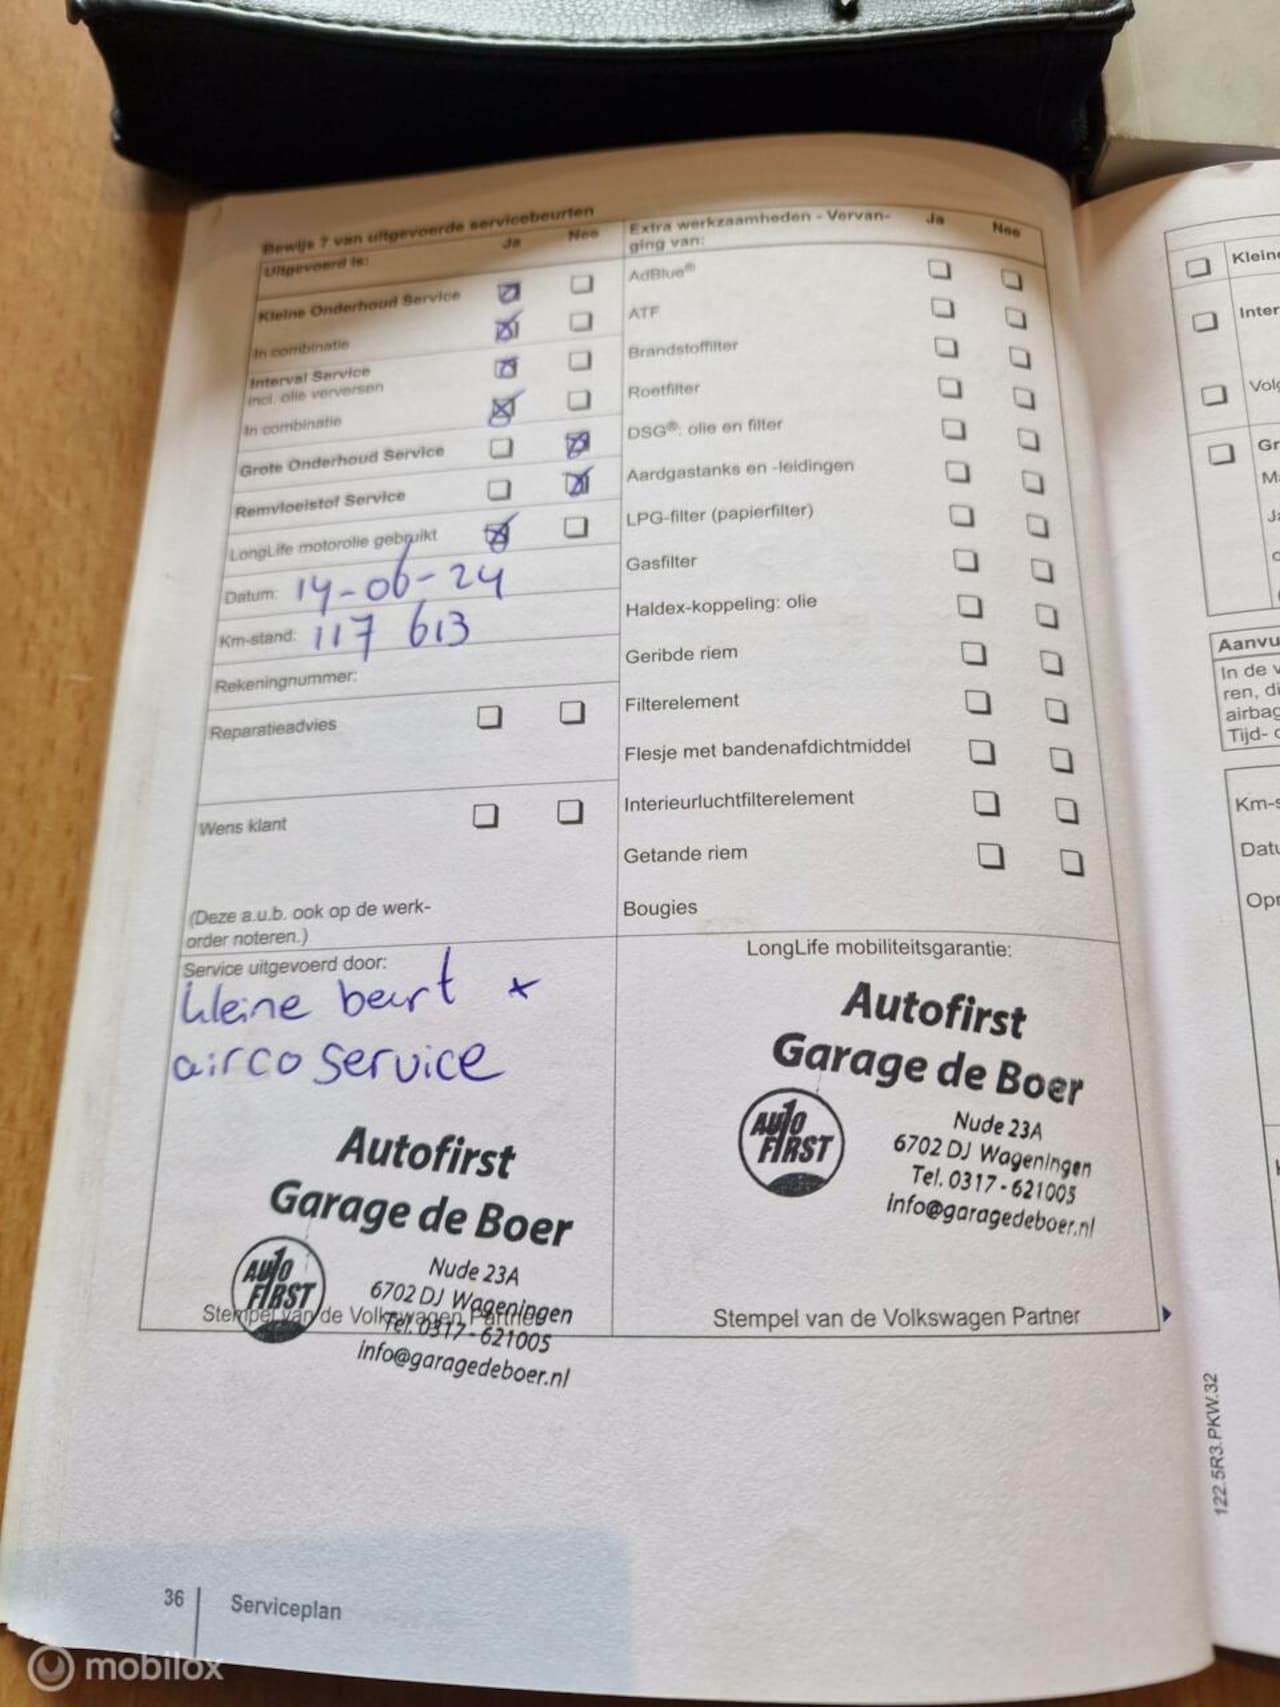 Bewijs 7 van uitgevoerde servicebeurten
Uitgevoerd is: Ja Nee
Kleine Onderhoud Service
In combinatie
Interval Service
incl. olie verversen
In combinatie
Grote Onderhoud Service
Remvloeistof Service
LongLife motorolie gebruikt
Datum: 14-06-24
Km-stand: 117 613
Rekeningnummer:
Reparatieadvies
Wens klant
(Deze a.u.b. ook op de werk-
order noteren.)
Extra werkzaamheden - Vervan-
ging van: Ja Nee
AdBlue®
ATF
Brandstoffilter
Roetfilter
DSG®: olie en filter
Aardgastanks en -leidingen
LPG-filter (papierfilter)
Gasfilter
Haldex-koppeling: olie
Geribde riem
Filterelement
Flesje met bandenafdichtmiddel
Interieurluchtfilterelement
Getande riem
Bougies
Service uitgevoerd door:
kleine beurt *
airco service
Autofirst
Garage de Boer
AUTO
FIRST
Nude 23A
6702 DJ Wageningen
Tel. 0317-621005
info@garagedeboer.nl
Stempel van de Volkswagen Partner
LongLife mobiliteitsgarantie:
Autofirst
Garage de Boer
AUTO
FIRST
Nude 23A
6702 DJ Wageningen
Tel. 0317-621005
info@garagedeboer.nl
Stempel van de Volkswagen Partner
122.5R3.PKW.32
36 Serviceplan
Aanvu
In de v
ren, di
airbag
Tijd-
Km-s
Datu
mobilox